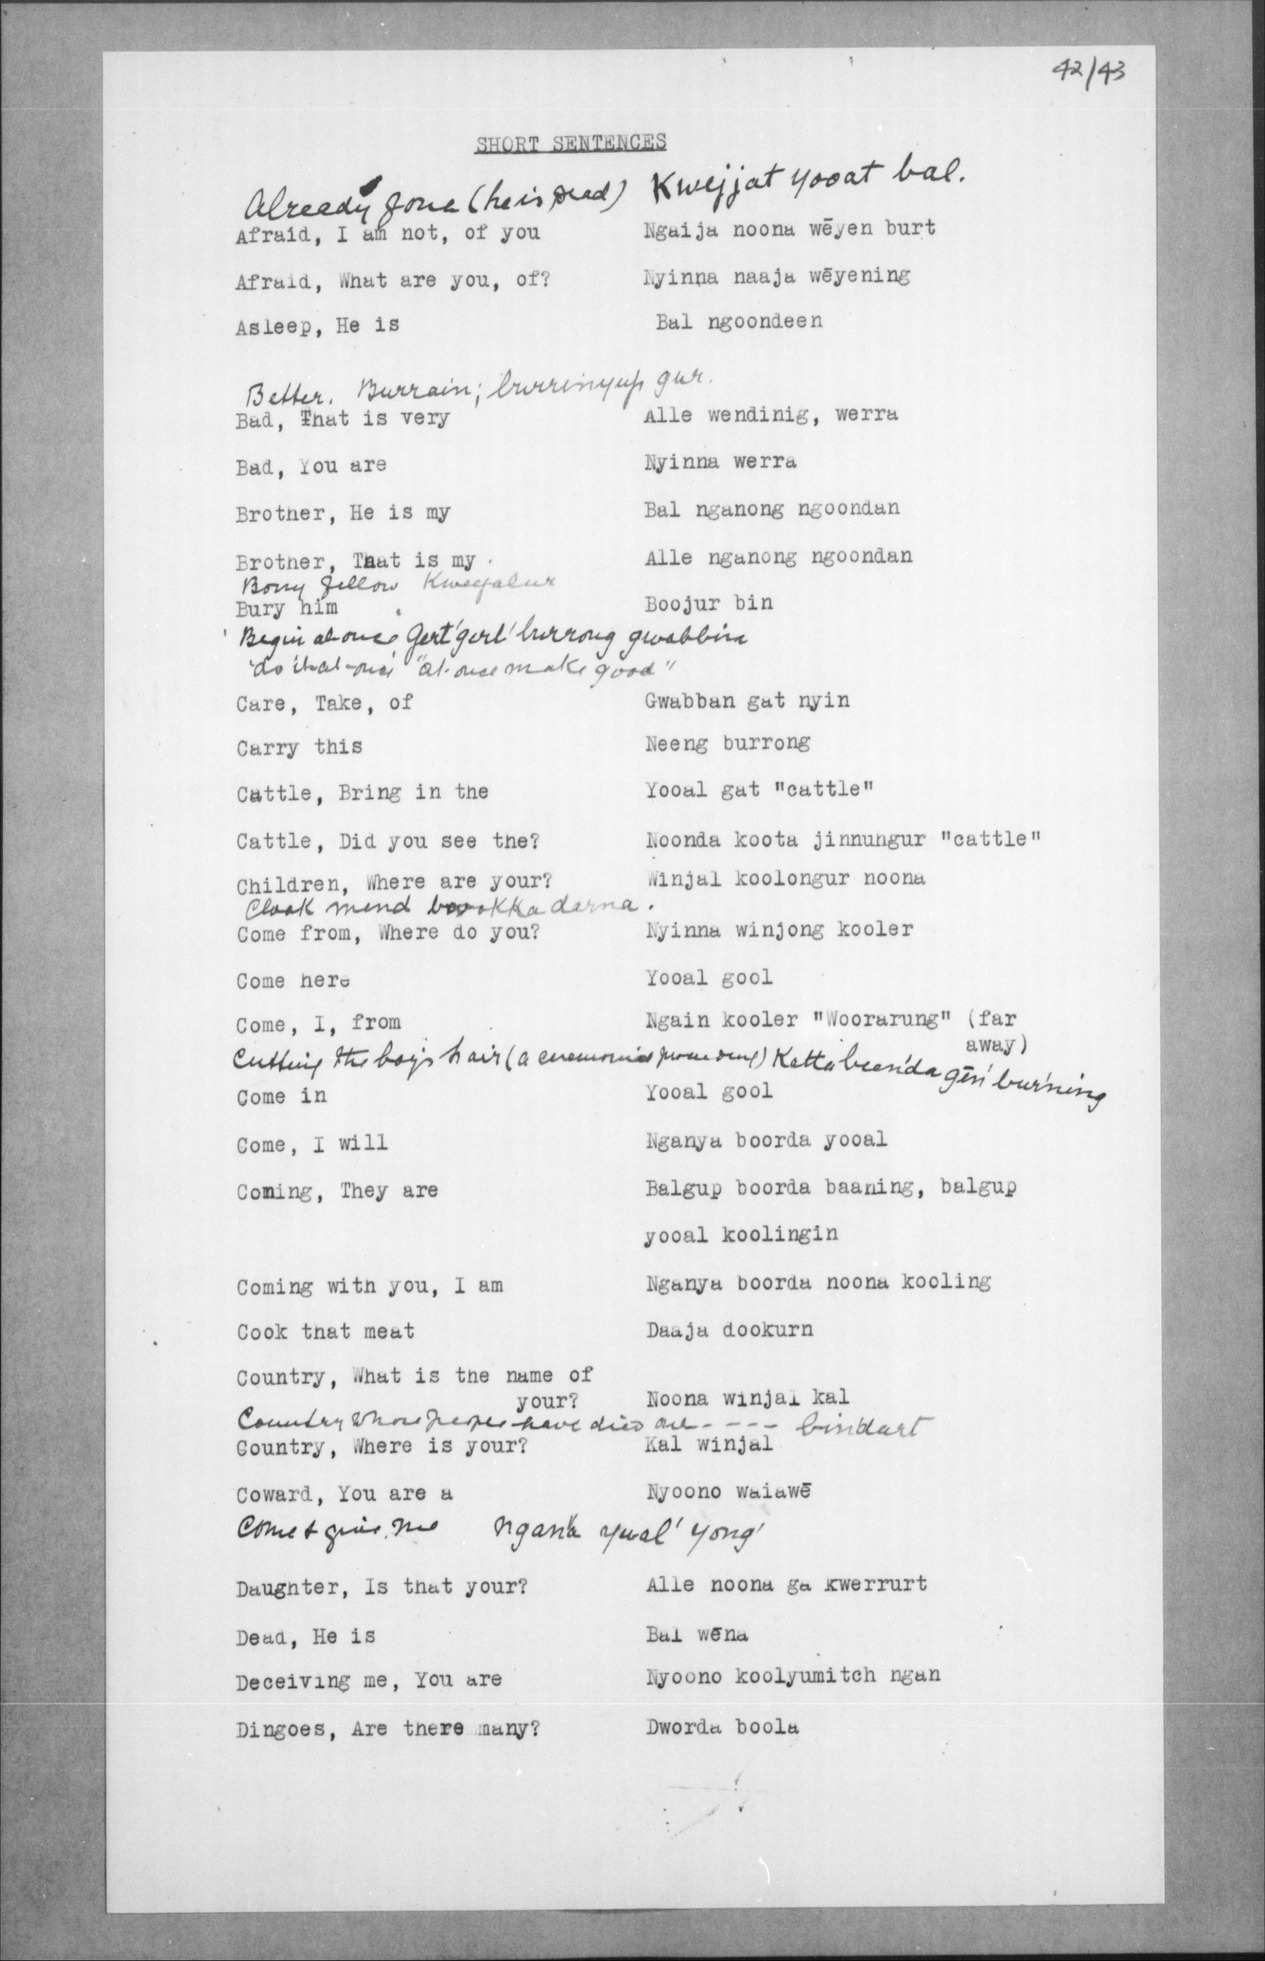 42/43
SHORT SENTENCES
Already gone (he is dead) Kwejjat yooat bal.
Afraid, I am not, of you Ngaija noona wēyen burt
Afraid, What are you, of? Nyinna naaja wēyening
Asleep, He is Bal ngoondeen
Better. Burrain; burrinyup gur.
Bad, That is very Alle wendinig, werra
Bad, You are Nyinna werra
Brother, He is my Bal nganong ngoondan
Brother, That is my Alle nganong ngoondan
Bony fellow Kweejalur
Bury him Boojur bin
Begin at once Gert' gert' burrong gwabbin
"at once make good"
Care, Take, of Gwabban gat nyin
Carry this Neeng burrong
Cattle, Bring in the Yooal gat "cattle"
Cattle, Did you see the? Noonda koota jinnungur "cattle"
Children, Where are your? Winjal koolongur noona
Cloak mend bookka darna.
Come from, Where do you? Nyinna winjong kooler
Come here Yooal gool
Come, I, from Ngain kooler "Woorarung" (far
away)
Cutting the boy's hair (a ceremonial proceeding) Katta beenda gēn' burning
Come in Yooal gool
Come, I will Nganya boorda yooal
Coming, They are Balgup boorda baaning, balgup
yooal koolingin
Coming with you, I am Nganya boorda noona kooling
Cook that meat Daaja dookurn
Country, What is the name of
your? Noona winjal kal
Country whose people have died one - - - - bin'dart
Country, Where is your? Kal winjal
Coward, You are a Nyoono waiawē
Come & give me ngan'a yual' yong'
Daughter, Is that your? Alle noona ga kwerrurt
Dead, He is Bal wēna
Deceiving me, You are Nyoono koolyumitch ngan
Dingoes, Are there many? Dworda boola